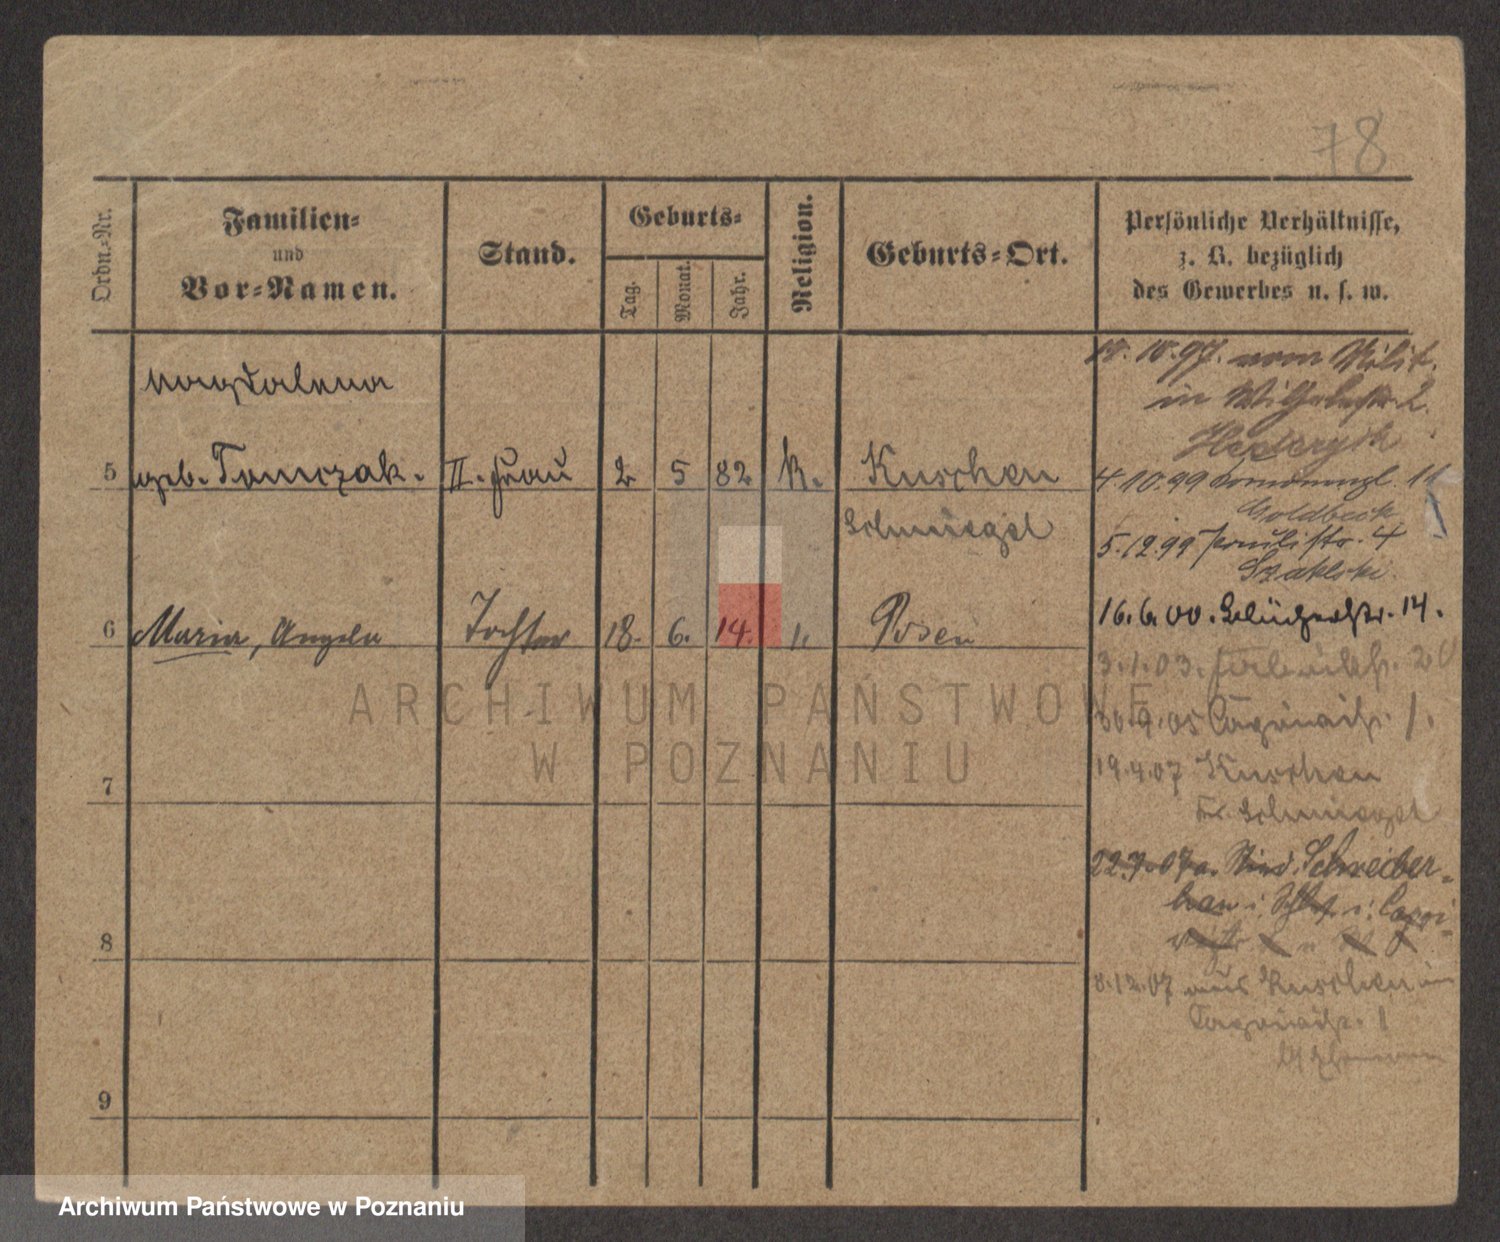 78
Ordn.-Nr.
Familien-
und
Vor-Namen.
Stand.
Geburts-
Tag.
Monat.
Jahr.
Religion.
Geburts-Ort.
Persönliche Verhältnisse,
z. B. bezüglich
des Gewerbes u. s. w.
Magdalena
5 geb. Tomczak. II. Frau 2 5 82 k. Kuschen
Schmiegel
6 Maria, Angela Tochter 18. 6. 14. Posen
7
8
9
10.10.97. vom Milit.
in Wilhelmstr. 2.
4.10.99
Goldbeck
5.12.99 Paulistr. 4
16.6.00. Blücherstr. 14.
3.1.03. 20
30.9.05 1.
19.4.07 Kuschen
Kr. Schmiegel
22.7.07 Schreiber-
hau i.
8.12.07 aus Kuschen in
1
ARCHIWUM PAŃSTWOWE
W POZNANIU
Archiwum Państwowe w Poznaniu